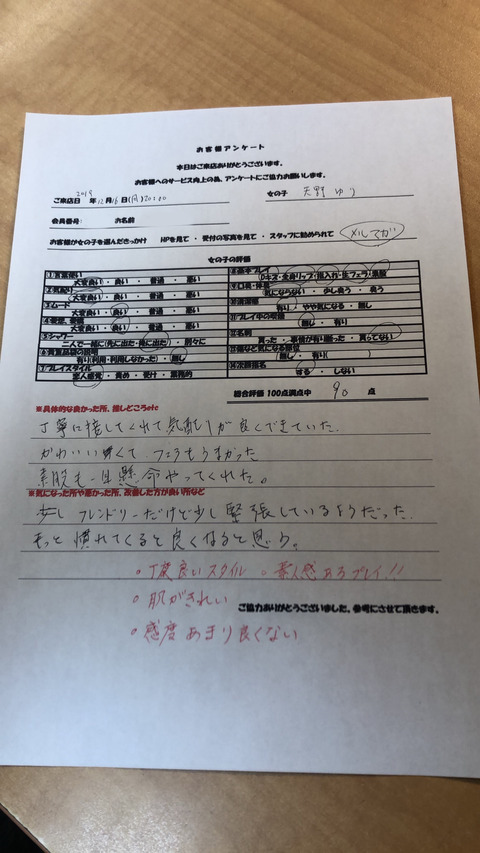 お客様アンケート
本日はご来店ありがとうございます。
お客様へのサービス向上の為、アンケートにご協力お願いします。
ご来店日 2019 年 12月16日(月)20:00 女の子 天野 ゆり
会員番号: お名前
お客様が女の子を選んだきっかけ HPを見て ・ 受付の写真を見て ・ スタッフに勧められて メルマガ
女の子の評価
①言葉使い
大変良い ・ 良い ・ 普通 ・ 悪い
②気配り
大変良い ・ 良い ・ 普通 ・ 悪い
③ムード
大変良い ・ 良い ・ 普通 ・ 悪い
④容姿、
大変良い ・ 良い ・ 普通 ・ 悪い
⑤シャワー
二人で一緒に(先に出た・後に出た) ・ 別々に
⑥貴重品袋の説明
有り(利用・利用しなかった) ・ 無し
⑦プレイスタイル
恋人感覚 ・ 責め ・ 受け ・ 業務的
⑧基本プレイ
Dキス・全身リップ・指入れ・生フェラ・素股
⑨口臭・体臭
気にならない ・ 少し臭う ・ 臭う
⑩清潔感
有り ・ やや気になる ・ 無し
⑪プレイ中の
無し ・ 有り
⑫名刺
貰った ・ 事情が有り断った ・ 貰ってない
無し ・ 有り( )
⑭次回指名
する ・ しない
総合評価 100点満点中 90 点
※具体的な良かった所、推しどころetc
丁寧に接してくれて気配りが良くできていた。
かわいい 尽くて フェラもうまかった
素股も一生懸命やってくれた。
※気になった所や悪かった所、改善した方が良い所など
少し フレンドリーだけど少し緊張しているようだった。
もっと慣れてくると良くなると思う。
○丁度良いスタイル ○素人感あるプレイ!!
○肌がきれい
ご協力ありがとうございました。参考にさせて頂きます。
○感度あまり良くない